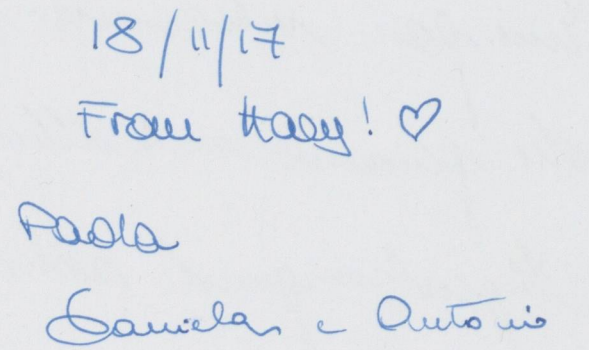 18/11/17
From Italy! ♡
Paola
Daniela e Antonio